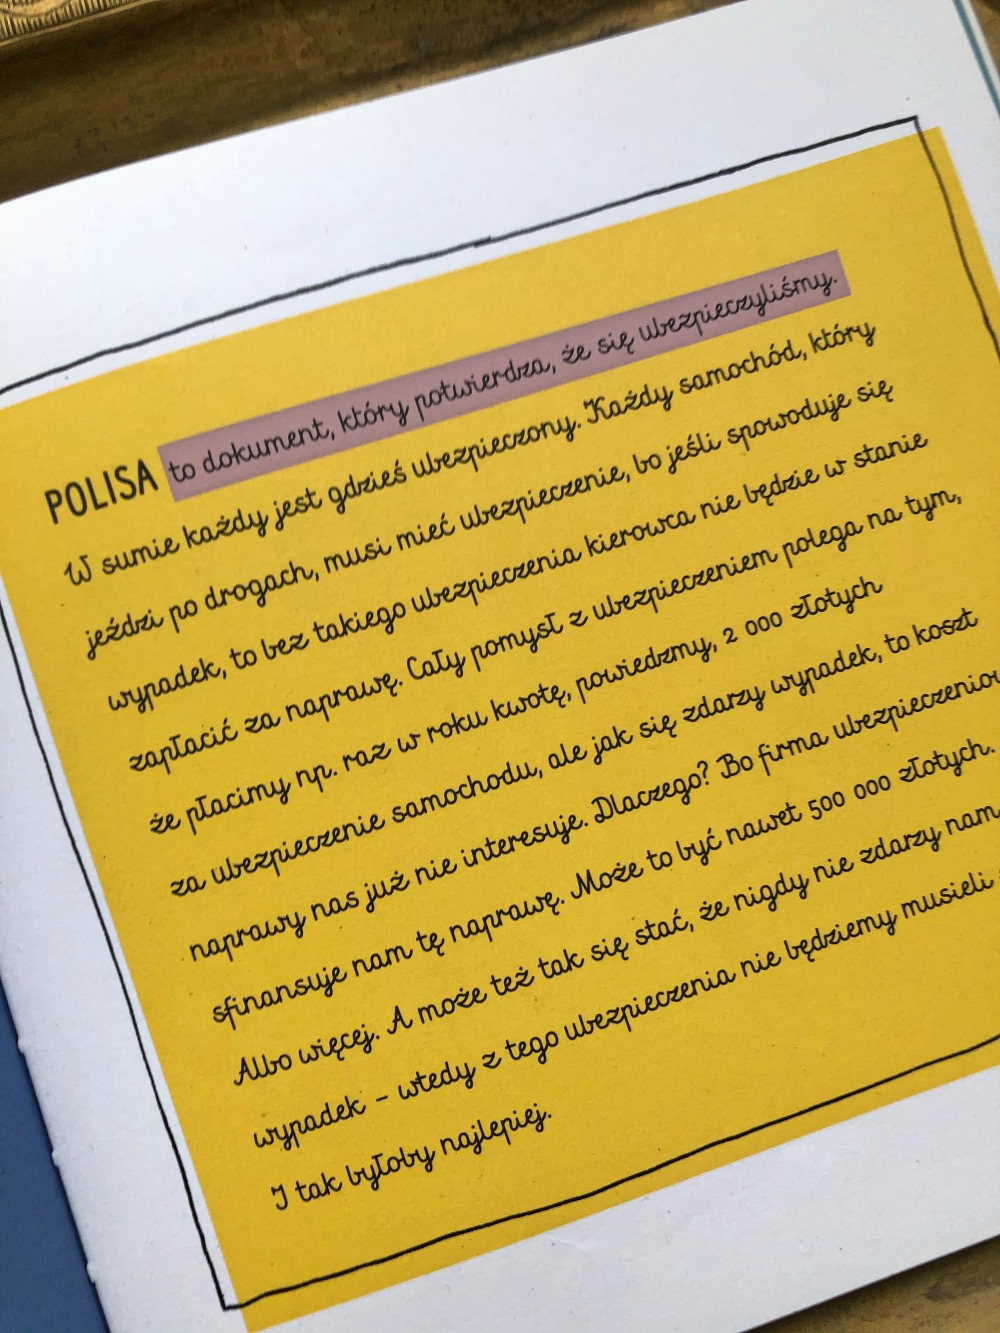 POLISA to dokument, który potwierdza, że się ubezpieczyliśmy.
W sumie każdy jest gdzieś ubezpieczony. Każdy samochód, który
jeździ po drogach, musi mieć ubezpieczenie, bo jeśli spowoduje się
wypadek, to bez takiego ubezpieczenia kierowca nie będzie w stanie
zapłacić za naprawę. Cały pomysł z ubezpieczeniem polega na tym,
że płacimy np. raz w roku kwotę, powiedzmy, 2 000 złotych
za ubezpieczenie samochodu, ale jak się zdarzy wypadek, to koszt
naprawy nas już nie interesuje. Dlaczego? Bo firma
sfinansuje nam tę naprawę. Może to być nawet 500 000 złotych.
Albo więcej. A może też tak się stać, że nigdy nie zdarzy nam
wypadek – wtedy z tego ubezpieczenia nie będziemy musieli
I tak byłoby najlepiej.